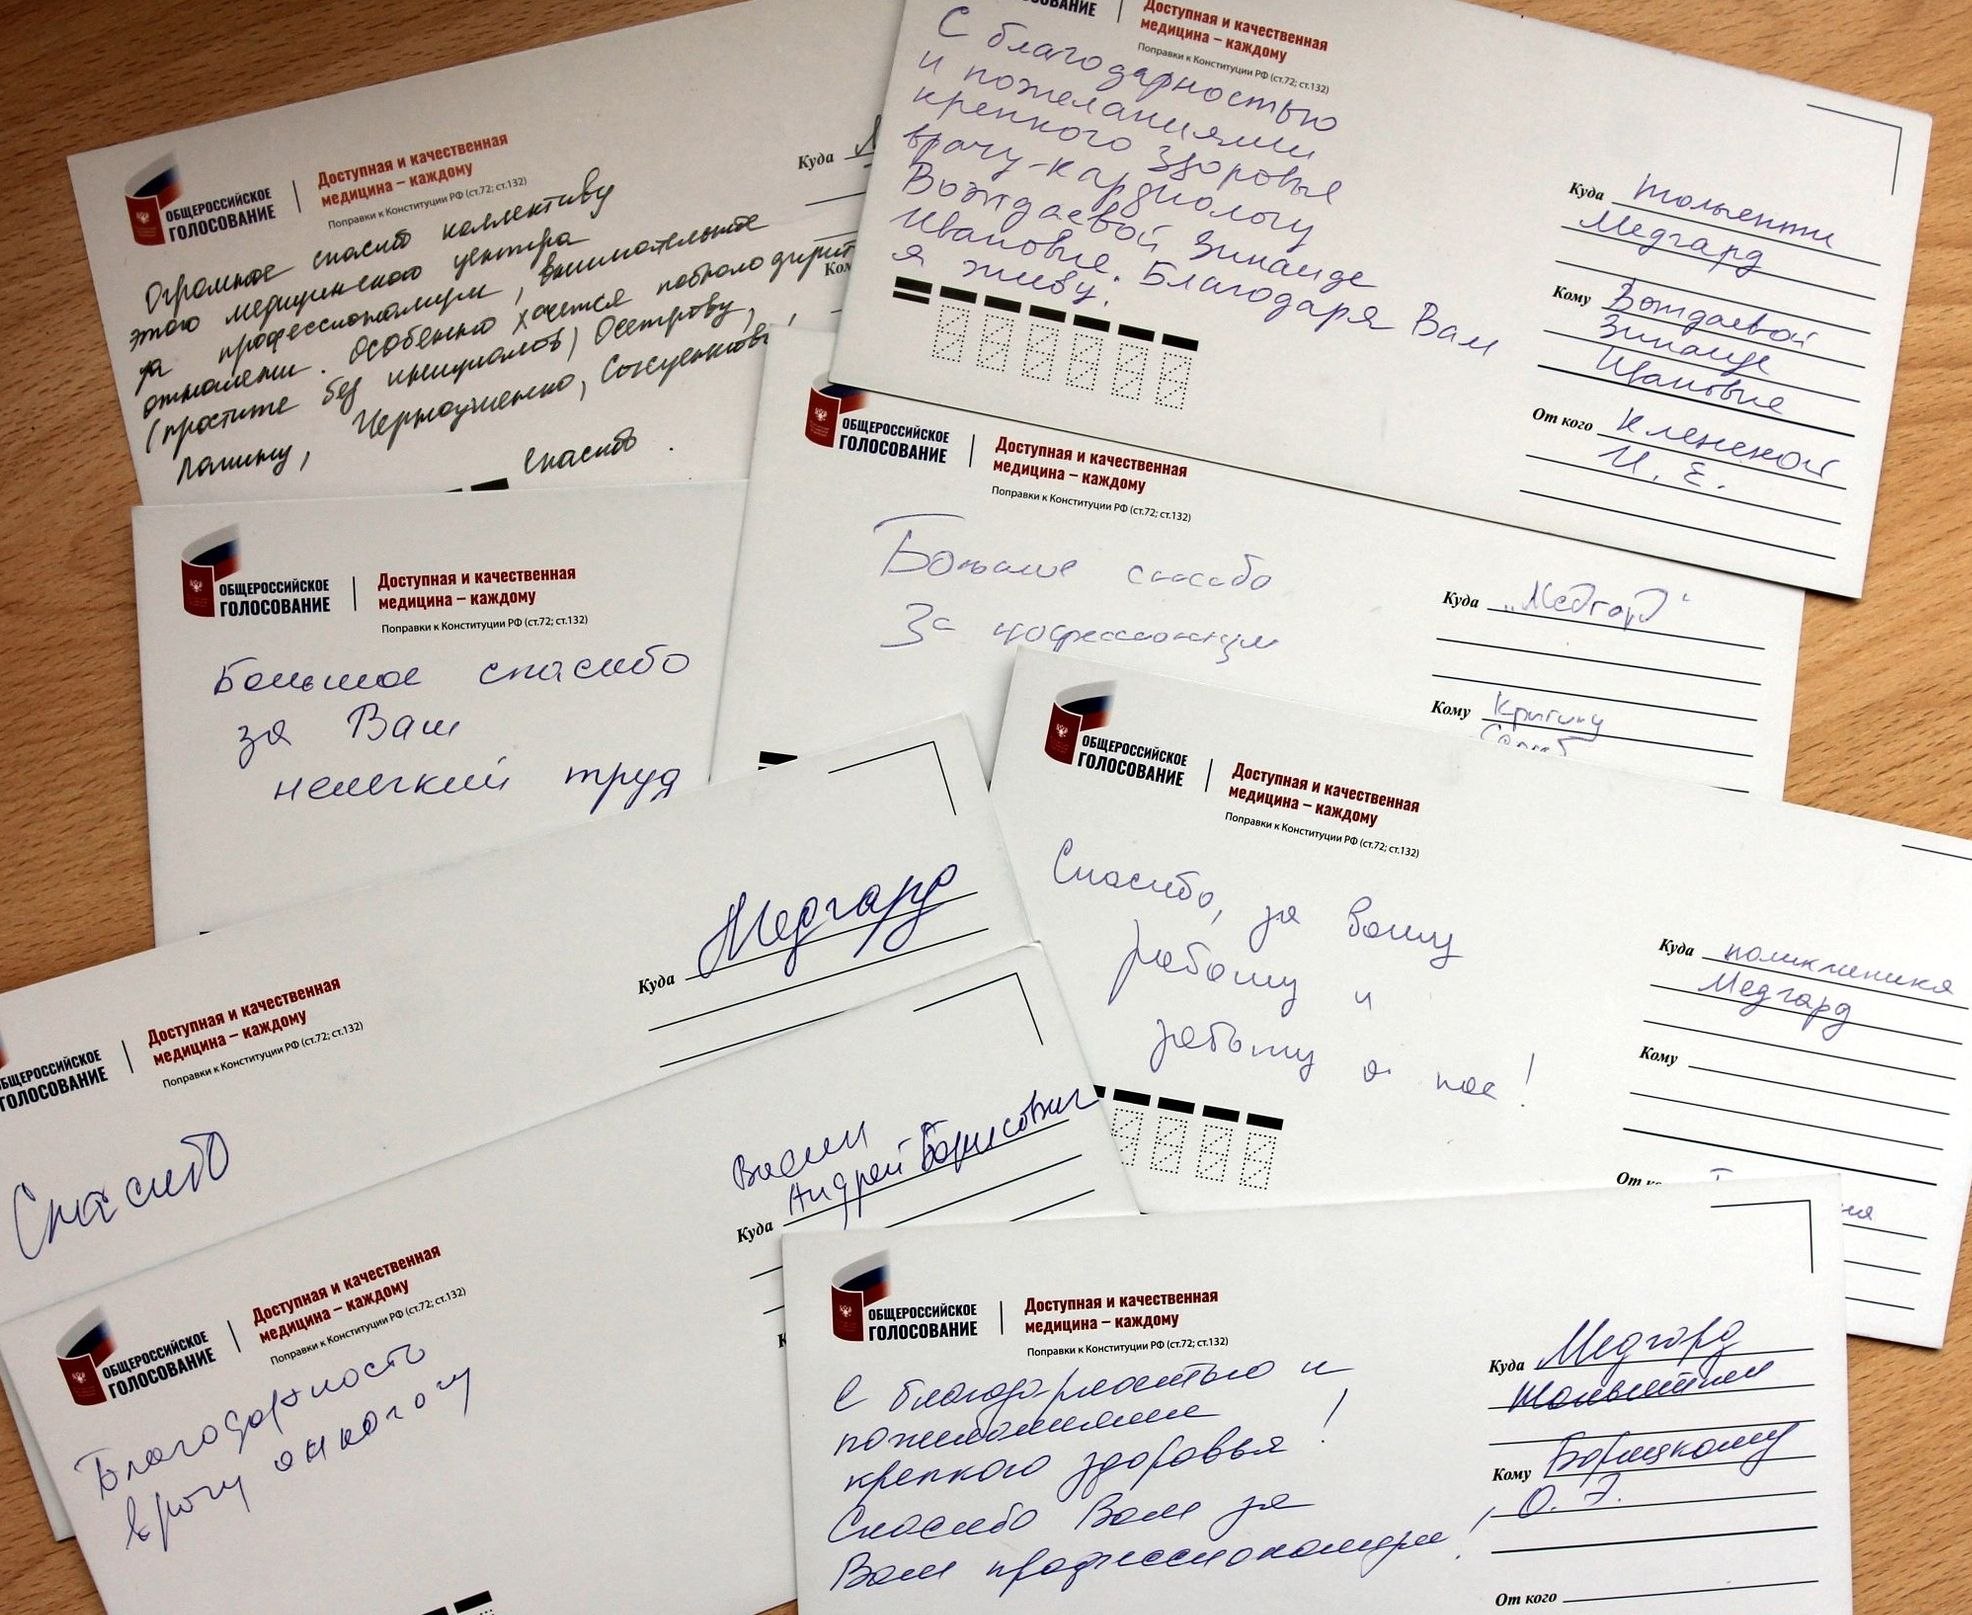 ОБЩЕРОССИЙСКОЕ
ГОЛОСОВАНИЕ
Доступная и качественная
медицина – каждому
Поправки к Конституции РФ (ст.72; ст.132)
Огромное спасибо коллективу
этого медицинского центра
за профессионализм, внимательное
отношение. Особенно хочется поблагодарить
(простите без инициалов) Осетрову,
Чернодученко,
Спасибо.
Куда
Ком
ГОЛОСОВАНИЕ
Доступная и качественная
медицина – каждому
Поправки к Конституции РФ (ст.72; ст.132)
С благодарностью
и пожеланиями
крепкого здоровья
врачу-кардиологу
Вождаевой Зинаиде
Ивановне. Благодаря Вам
я живу.
Куда Тольятти
Медгард
Кому Вождаевой
Зинаиде
Ивановне
От кого Кленской
И. Е.
ОБЩЕРОССИЙСКОЕ
ГОЛОСОВАНИЕ
Доступная и качественная
медицина – каждому
Поправки к Конституции РФ (ст.72; ст.132)
Большое спасибо
за Ваш
нелегкий труд
ОБЩЕРОССИЙСКОЕ
ГОЛОСОВАНИЕ
Доступная и качественная
медицина – каждому
Поправки к Конституции РФ (ст.72; ст.132)
Большое спасибо
За профессионализм
Куда „Медгард"
Кому
ОБЩЕРОССИЙСКОЕ
ГОЛОСОВАНИЕ
Доступная и качественная
медицина – каждому
Поправки к Конституции РФ (ст.72; ст.132)
Спасибо, за вашу
работу и
заботу о нас!
Куда поликлиника
Медгард
Кому
От ко
ОБЩЕРОССИЙСКОЕ
ГОЛОСОВАНИЕ
Доступная и качественная
медицина – каждому
Поправки к Конституции РФ (ст.72; ст.132)
Спасибо
Куда Медгард
ОБЩЕРОССИЙСКОЕ
ГОЛОСОВАНИЕ
Доступная и качественная
медицина – каждому
Поправки к Конституции РФ (ст.72; ст.132)
Благодарность
врачу онкологу
Васин
Андрей Борисович
Куда
ОБЩЕРОССИЙСКОЕ
ГОЛОСОВАНИЕ
Доступная и качественная
медицина – каждому
Поправки к Конституции РФ (ст.72; ст.132)
С благодарностью и
пожеланиями
крепкого здоровья!
Спасибо Вам за
Ваш профессионализм!
Куда Медгард
Тольятти
Кому Борицкому
О. Э.
От кого